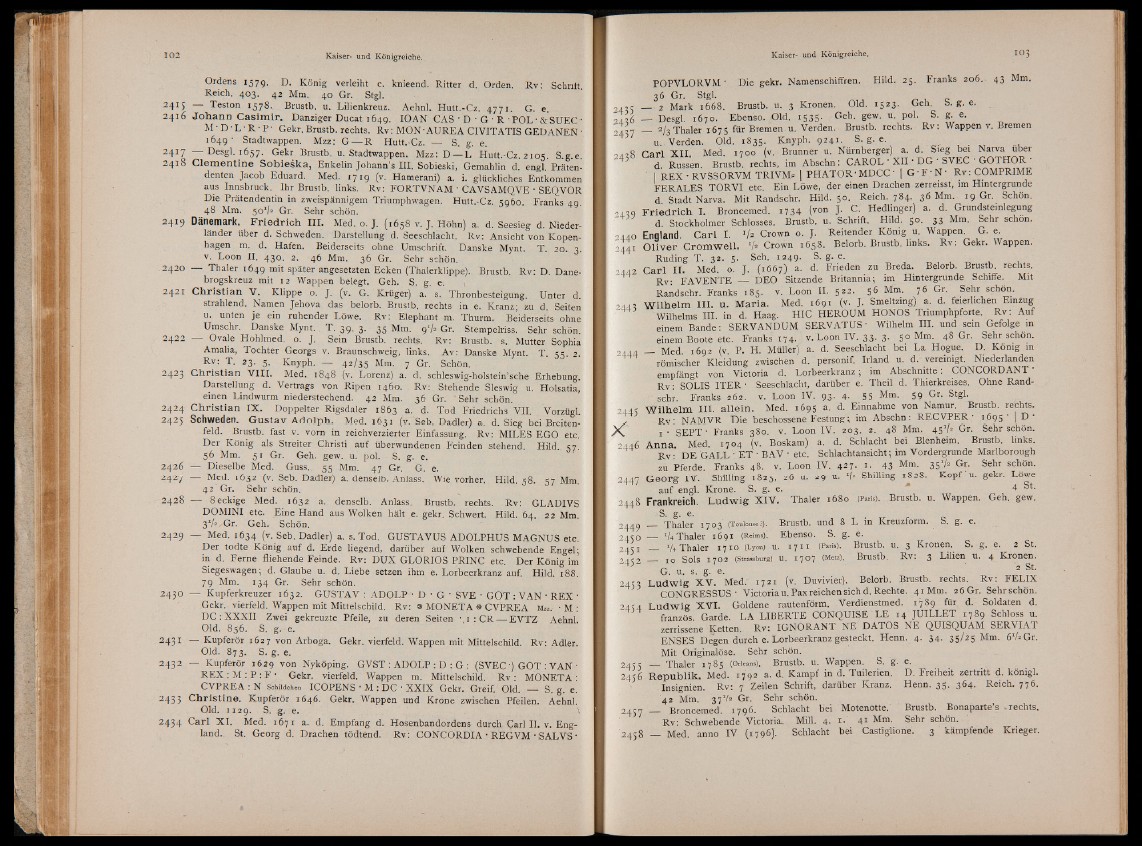 102 Kaiser- und Königreiche.
Ordens 1579. D. König verleiht e. knieend. Ritter d. Orden. Rv: Schrift.
Reich. 403. 42 Mm. 40 Gr. Stgl.
2415 — Teston 1578. Brustb. u. Lilienkreuz. Aehnl. Hutt.-Cz. 4771. G. e.
2416 Johann Casimir. Danziger Ducat 1649. IOAN CAS · D · G · R · POL · & SUEC ·
M · D · L · R · P · Gekr. Brustb. rechts. Rv: MON · AUREA CIVITATIS GEDANEN ·
1649 · Stadtwappen. Mzz: G — R Hutt.-Cz. — S. g. e.
2417 — Desgl. 1657. Gekr. Brustb. u. Stadtwappen. Mzz: D — L Hutt.-Cz. 2105. S. g. e.
2418 Clementine Sobieska, Enkelin Johann's III. Sobieski, Gemahlin d. engl. Präten-
denten Jacob Eduard. Med. 1719 (v. Hamerani) a. i. glückliches Entkommen
aus Innsbruck. Ihr Brustb. links. Rv: FORTVNAM · CAVSAMQVE · SEQVOR
Die Prätendentin in zweispännigem Triumphwagen. Hutt.-Cz. 5960. Franks 49.
48 Mm. 50½ Gr. Sehr schön.
2419 Dänemark. Friedrich III. Med. o. J. (1658 v. J. Höhn) a. d. Seesieg d. Nieder-
länder über d. Schweden. Darstellung d. Seeschlacht. Rv: Ansicht von Kopen-
hagen m. d. Hafen. Beiderseits ohne Umschrift. Danske Mynt. T. 20. 3.
v. Loon II, 430. 2. 46 Mm. 36 Gr. Sehr schön.
2420 — Thaler 1649 mit später angesetzten Ecken (Thalerklippe). Brustb. Rv: D. Dane-
brogskreuz mit 12 Wappen belegt. Geh. S. g. e.
2421 Christian V. Klippe o. J. (v. G. Krüger) a. s. Thronbesteigung. Unter d.
strahlend. Namen Jehova das belorb. Brustb. rechts in e. Kranz; zu d. Seiten
u. unten je ein ruhender Löwe. Rv: Elephant m. Thurm. Beiderseits ohne
Umschr. Danske Mynt. T. 39. 3. 35 Mm. 9½ Gr. Stempelriss. Sehr schön.
2422 — Ovale Hohlmed. o. J. Sein Brustb. rechts. Rv: Brustb. s. Mutter Sophia
Amalia, Tochter Georgs v. Braunschweig, links. Av: Danske Mynt. T. 55. 2.
Rv: T. 23. 5. Knyph. — 42/35 Mm. 7 Gr. Schön.
2423 Christian VIII. Med. 1848 (v. Lorenz) a. d. schleswig-holstein'sche Erhebung.
Darstellung d. Vertrags von Ripen 1460. Rv: Stehende Sleswig u. Holsatia,
einen Lindwurm niederstechend. 42 Mm. 36 Gr. Sehr schön.
2424 Christian IX. Doppelter Rigsdaler 1863 a. d. Tod Friedrichs VII. Vorzügl.
2425 Schweden. Gustav Adolph. Med. 1631 (v. Seb. Dadler) a. d. Sieg bei Breiten-
feld. Brustb. fast v. vorn in reichverzierter Einfassung. Rv: MILES EGO etc.
Der König als Streiter Christi auf überwundenen Feinden stehend. Hild. 57.
56 Mm. 51 Gr. Geh. gew. u. pol. S. g. e.
2426 — Dieselbe Med. Guss. 55 Mm. 47 Gr. G. e.
2427 — Med. 1632 (v. Seb. Dadler) a. denselb. Anlass. Wie vorher. Hild. 58. 57 Mm.
42 Gr. Sehr schön.
2428 — 8eckige Med. 1632 a. denselb. Anlass. Brustb. rechts. Rv: GLADIVS
DOMINI etc. Eine Hand aus Wolken hält e. gekr. Schwert. Hild. 64. 22 Mm.
3½ Gr. Geh. Schön.
2429 — Med. 1634 (v. Seb. Dadler) a. s. Tod. GUSTAVUS ADOLPHUS MAGNUS etc.
Der todte König auf d. Erde liegend, darüber auf Wolken schwebende Engel;
in d. Ferne fliehende Feinde. Rv: DUX GLORIOS PRINC etc. Der König im
Siegeswagen; d. Glaube u. d. Liebe setzen ihm e. Lorbeerkranz auf. Hild. 188.
79 Mm. 134 Gr. Sehr schön.
2430 — Kupferkreuzer 1632. GUSTAV : ADOLP · D · G · SVE · GOT : VAN · REX ·
Gekr. vierfeld. Wappen mit Mittelschild. Rv: MONETA CVPREA Mzz. · M :
DC : XXXII Zwei gekreuzte Pfeile, zu deren Seiten · 1 : CR — EVTZ Aehnl.
Old. 856. S. g. e.
2431 — Kupferör 1627 von Arboga. Gekr. vierfeld. Wappen mit Mittelschild. Rv: Adler.
Old. 873. S. g. e.
2432 — Kupferör 1629 von Nyköping. GVST : ADOLP : D : G : (SVEC ·) GOT : VAN ·
REX : M : P : F · Gekr. vierfeld. Wappen m. Mittelschild. Rv: MONETA :
CVPREA : N Schildchen ICOPENS · M : DC · XXIX Gekr. Greif. Old. — S. g. e.
2433 Christine. Kupferör 1646. Gekr. Wappen und Krone zwischen Pfeilen. Aehnl.
Old. 1129. S. g. e.
2434 Carl XI. Med. 1671 a. d. Empfang d. Hosenbandordens durch Carl II. v. Eng-
land. St. Georg d. Drachen tödtend. Rv: CONCORDIA · REGVM · SALVS ·
Kaiser- und Königreiche. 103
POPVLORVM · Die gekr. Namenschiffren. Hild. 25. Franks 206. 43 Mm.
36 Gr. Stgl.
2435 — 2 Mark 1668. Brustb. u. 3 Kronen. Old. 1523. Geh. S. g. e.
2436 — Desgl. 1670. Ebenso. Old. 1535. Geh. gew. u. pol. S. g. e.
2437 — ⅔ Thaler 1675 für Bremen u. Verden. Brustb. rechts. Rv: Wappen v. Bremen
u. Verden. Old. 1835. Knyph. 9241. S. g. e.
2438 Carl XII. Med. 1700 (v. Brunner u. Nürnberger) a. d. Sieg bei Narva über
d. Russen. Brustb. rechts, im Abschn: CAROL · XII · DG · SVEC · GOTHOR ·
| REX · RVSSORVM TRIVM= | PHATOR · MDCC · | G · F · N · Rv: COMPRIME
FERALES TORVI etc. Ein Löwe, der einen Drachen zerreisst, im Hintergrunde
d. Stadt Narva. Mit Randschr. Hild. 50. Reich. 784. 36 Mm. 19 Gr. Schön.
2439 Friedrich I. Broncemed. 1734 (von J. C. Hedlinger) a. d. Grundsteinlegung
d. Stockholmer Schlosses. Brustb. u. Schrift. Hild. 50. 33 Mm. Sehr schön.
2440 England. Carl I. ½ Crown o. J. Reitender König u. Wappen. G. e.
2441 Oliver Cromwell. ½ Crown 1658. Belorb. Brustb. links. Rv: Gekr. Wappen.
Ruding T. 32. 5. Sch. 1249. S. g. e.
2442 Carl II. Med. o. J. (1667) a. d. Frieden zu Breda. Belorb. Brustb. rechts.
Rv: FAVENTE — DEO Sitzende Britannia; im Hintergrunde Schiffe. Mit
Randschr. Franks 185. v. Loon II. 522. 56 Mm. 76 Gr. Sehr schön.
2443 Wilhelm III. u. Maria. Med. 1691 (v. J. Smeltzing) a. d. feierlichen Einzug
Wilhelms III. in d. Haag. HIC HEROUM HONOS Triumphpforte. Rv: Auf
einem Bande: SERVANDUM SERVATUS · Wilhelm III. und sein Gefolge in
einem Boote etc. Franks 174. v. Loon IV. 33. 3. 50 Mm. 48 Gr. Sehr schön.
2444 — Med. 1692 (v. P. H. Müller) a. d. Seeschlacht bei La Hogue. D. König in
römischer Kleidung zwischen d. personif. Irland u. d. vereinigt. Niederlanden
empfängt von Victoria d. Lorbeerkranz; im Abschnitte: CONCORDANT ·
Rv: SOLIS ITER · Seeschlacht, darüber e. Theil d. Thierkreises. Ohne Rand-
schr. Franks 262. v. Loon IV. 93. 4. 55 Mm. 59 Gr. Stgl.
2445 Wilhelm III. allein. Med. 1695 a. d. Einnahme von Namur. Brustb. rechts.
Rv: NAMVR Die beschossene Festung; im Abschn: RECVPER · 1695 · | D ·
1 · SEPT · Franks 380. v. Loon IV. 203. 2. 48 Mm. 45½ Gr. Sehr schön.
2446 Anna. Med. 1704 (v. Boskam) a. d. Schlacht bei Blenheim. Brustb. links.
Rv: DE GALL · ET · BAV · etc. Schlachtansicht; im Vordergrunde Marlborough
zu Pferde. Franks 48. v. Loon IV. 427. 1. 43 Mm. 35½ Gr. Sehr schön.
2447 Georg IV. Shilling 1825, 26 u. 29 u. ½ Shilling 1828. Kopf u. gekr. Löwe
auf engl. Krone. S. g. e. 4 St.
2448 Frankreich. Ludwig XIV. Thaler 1680 (Paris). Brustb. u. Wappen. Geh. gew.
S. g. e.
2449 — Thaler 1703 (Toulouse?). Brustb. und 8 L in Kreuzform. S. g. e.
2450 — ¼ Thaler 1691 (Reims). Ebenso. S. g. e.
2451 — ¼ Thaler 1710 (Lyon) u. 1711 (Paris). Brustb. u. 3 Kronen. S. g. e. 2 St.
2452 — 10 Sols 1702 (Strassburg) u. 1707 (Metz). Brustb. Rv: 3 Lilien u. 4 Kronen.
G. u. s. g. e. 2 St.
2453 Ludwig XV. Med. 1721 (v. Duvivier). Belorb. Brustb. rechts. Rv: FELIX
CONGRESSUS · Victoria u. Pax reichen sich d. Rechte. 41 Mm. 26 Gr. Sehr schön.
2454 Ludwig XVI. Goldene rautenförm. Verdienstmed. 1789 für d. Soldaten d.
französ. Garde. LA LIBERTE CONQUISE LE 14 JUILLET 1789 Schloss u.
zerrissene Ketten. Rv: IGNORANT NE DATOS NE QUISQUAM SERVIAT
ENSES Degen durch e. Lorbeerkranz gesteckt. Henn. 4. 34. 35/25 Mm. 6½ Gr.
Mit Originalöse. Sehr schön.
2455 — Thaler 1785 (Orleans). Brustb. u. Wappen. S. g. e.
2456 Republik. Med. 1792 a. d. Kampf in d. Tuilerien. D. Freiheit zertritt d. königl.
Insignien. Rv: 7 Zeilen Schrift, darüber Kranz. Henn. 35. 364. Reich. 776.
42 Mm. 37½ Gr. Sehr schön.
2457 — Broncemed. 1796. Schlacht bei Motenotte. Brustb. Bonaparte's rechts.
Rv: Schwebende Victoria. Mill. 4. 1. 41 Mm. Sehr schön.
2458 — Med. anno IV (1796). Schlacht bei Castiglione. 3 kämpfende Krieger.